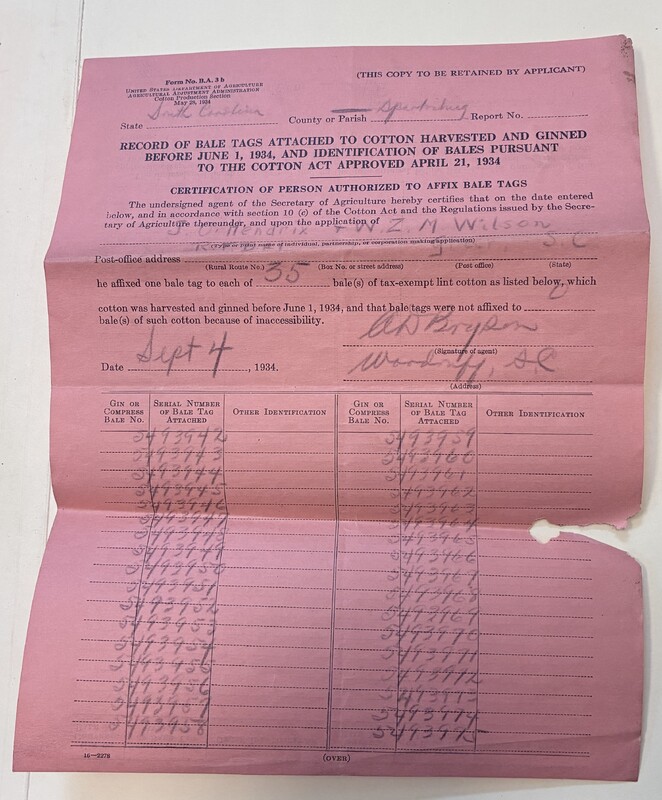 Form No. B.A. 3 b
UNITED STATES DEPARTMENT OF AGRICULTURE
AGRICULTURAL ADJUSTMENT ADMINISTRATION
Cotton Production Section
May 28, 1934
(THIS COPY TO BE RETAINED BY APPLICANT)
State South Carolina County or Parish Spartanburg Report No.
RECORD OF BALE TAGS ATTACHED TO COTTON HARVESTED AND GINNED
BEFORE JUNE 1, 1934, AND IDENTIFICATION OF BALES PURSUANT
TO THE COTTON ACT APPROVED APRIL 21, 1934
CERTIFICATION OF PERSON AUTHORIZED TO AFFIX BALE TAGS
The undersigned agent of the Secretary of Agriculture hereby certifies that on the date entered
below, and in accordance with section 10 (c) of the Cotton Act and the Regulations issued by the Secre-
tary of Agriculture thereunder, and upon the application of
Hendrix + W. Z. M. Wilson
(Type or print name of individual, partnership, or corporation making application)
Post-office address S.C
(Rural Route No.) (Box No. or street address) (Post office) (State)
he affixed one bale tag to each of 35 bale(s) of tax-exempt lint cotton as listed below, which
cotton was harvested and ginned before June 1, 1934, and that bale tags were not affixed to 0
bale(s) of such cotton because of inaccessibility.
A D Bryson
(Signature of agent)
Date Sept 4, 1934.
Woodruff, S.C
(Address)
GIN OR COMPRESS BALE NO. SERIAL NUMBER OF BALE TAG ATTACHED OTHER IDENTIFICATION GIN OR COMPRESS BALE NO. SERIAL NUMBER OF BALE TAG ATTACHED OTHER IDENTIFICATION
5493942 5493959
5493943 5493960
5493944 5493961
5493945 5493962
5493946 5493963
5493947 5493964
5493948 5493965
5493949 5493966
5493950 5493967
5493951 5493968
5493952 5493969
5493953 5493970
5493954 5493971
5493955 5493972
5493956 5493973
5493957 5493974
5493958 5493975
16—2278 (OVER)